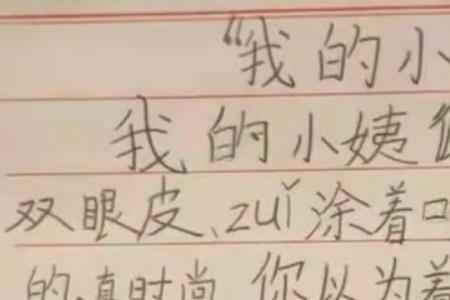 “我的小
我的小姨
双眼皮、zuǐ涂着口
的,真时尚 你以为着